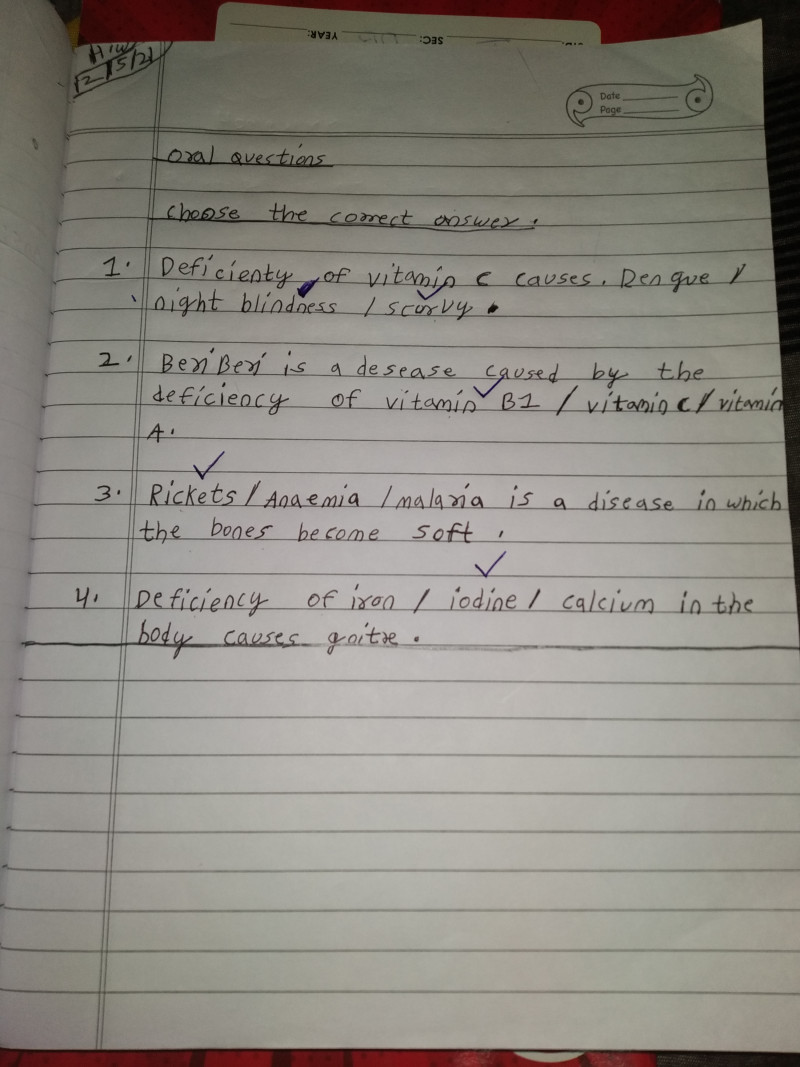 YEAR: SEC:
H/W
12/5/21
Date
Page
Oral questions
choose the correct answer.
1. Deficienty of vitamin C causes. Dengue /
night blindness / scurvy.
2. BeriBeri is a desease caused by the
deficiency of vitamin B1 / vitamin C / vitamin
A.
3. Rickets / Anaemia / malaria is a disease in which
the bones become soft.
4. Deficiency of iron / iodine / calcium in the
body causes goitre.